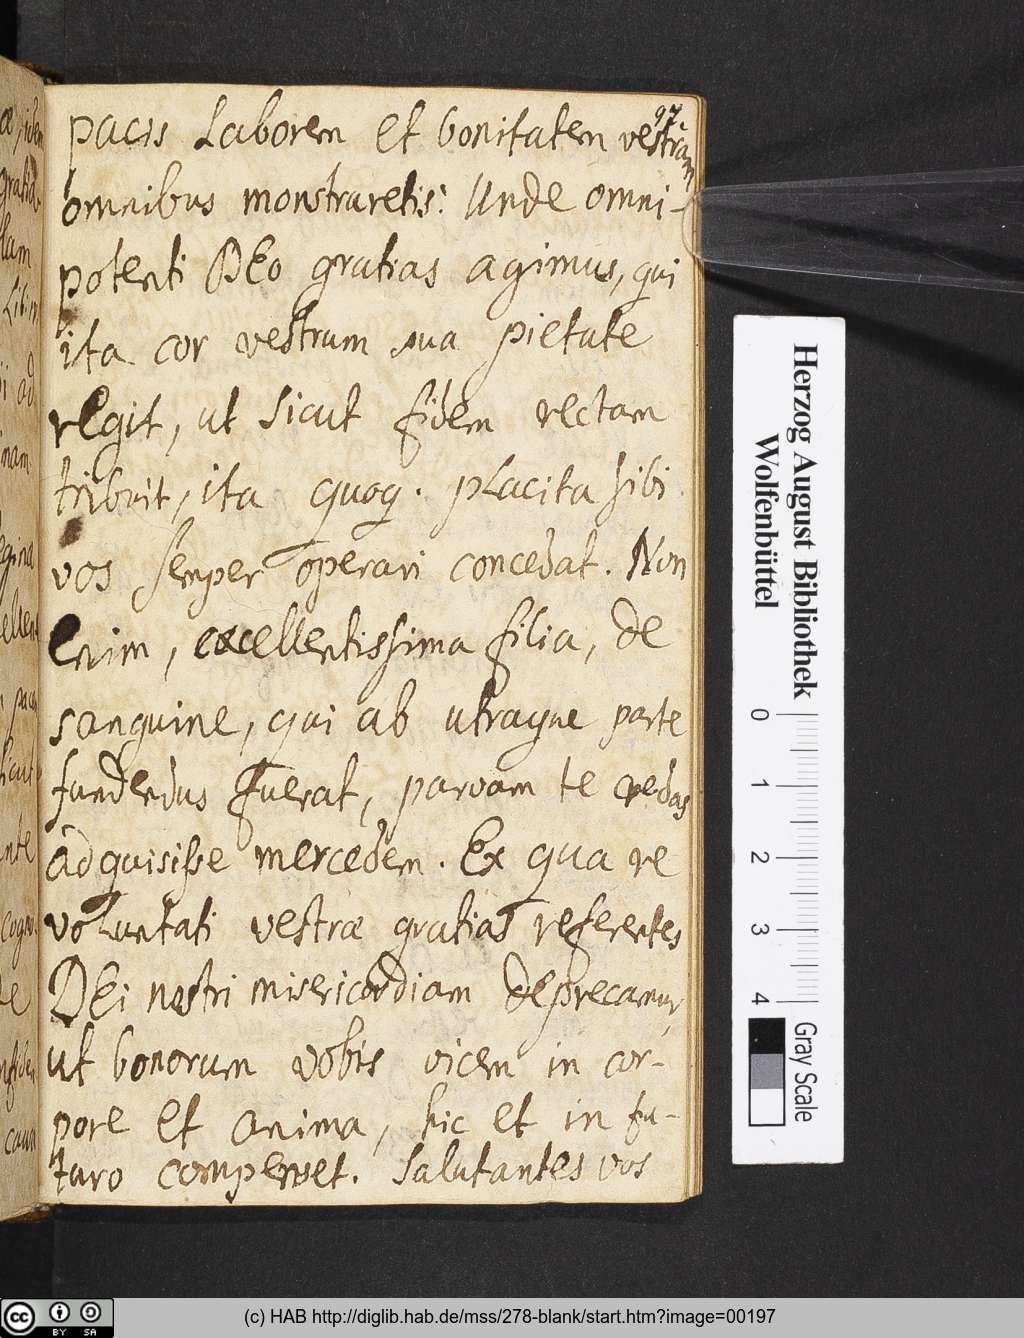 97.
pacis Laborem et bonitatem vestram
omnibus monstraretis: Unde omni-
potenti DEo gratias agimus, qui
ita cor vestrum sua pietate
regit, ut sicut fidem rectam
tribuit, ita quoq. placita sibi
vos semper operari concedat. Non
enim, excellentissima filia, de
sanguine, qui ab utraque parte
fundendus fuerat, parvam te credas
adquisisse mercedem. Ex qua re
voluntati vestræ gratias referentes
DEi nostri misericordiam deprecamur,
ut bonorum vobis vicem in cor-
pore et anima, hic et in fu-
turo compenset. Salutantes vos
Herzog August Bibliothek
Wolfenbüttel
0 1 2 3 4
Gray Scale
cc BY SA
(c) HAB http://diglib.hab.de/mss/278-blank/start.htm?image=00197